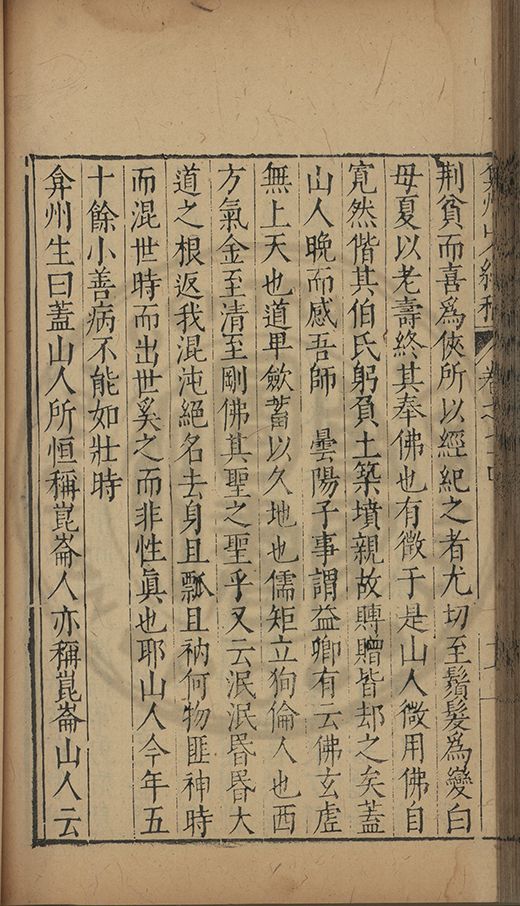 弇州山人續稿 卷之
荆貧而喜爲俠所以經紀之者尤切至鬚髮爲變白
母夏以老壽終其奉佛也有徵于是山人微用佛自
寛然偕其伯氏躬負土築墳親故賻贈皆却之矣蓋
山人晚而感吾師 曇陽子事謂益卿有云佛玄虛
無上天也道卑歛蓄以久地也儒矩立狥倫人也西
方氣金至清至剛佛其聖之聖乎又云泯泯昬昬大
道之根返我混沌絕名去身且瓢且衲何物匪神時
而混世時而出世奚之而非性眞也耶山人今年五
十餘小善病不能如壯時
弇州生曰蓋山人所恒稱崑崙人亦稱崑崙山人云